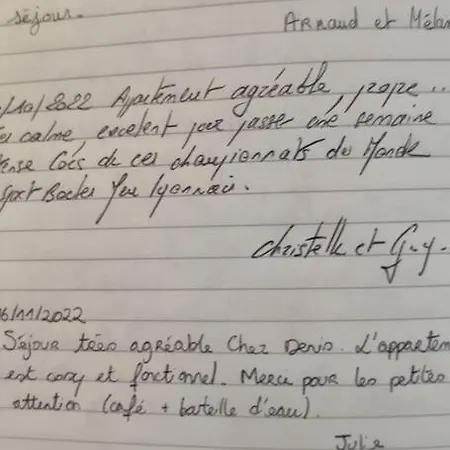 séjour.
Arnaud et Méla
/10/2022 Appartement agréable, propre..
calme, excelent pour passer une semaine
ense lors de ces championnats du Monde
sport Boules Jeu lyonnais.
Christelle et Guy.
6/11/2022
Séjour très agréable chez Denis. L'apparte
est cosy et fonctionnel. Merci pour les petites
attention (café + bouteille d'eau).
Julie